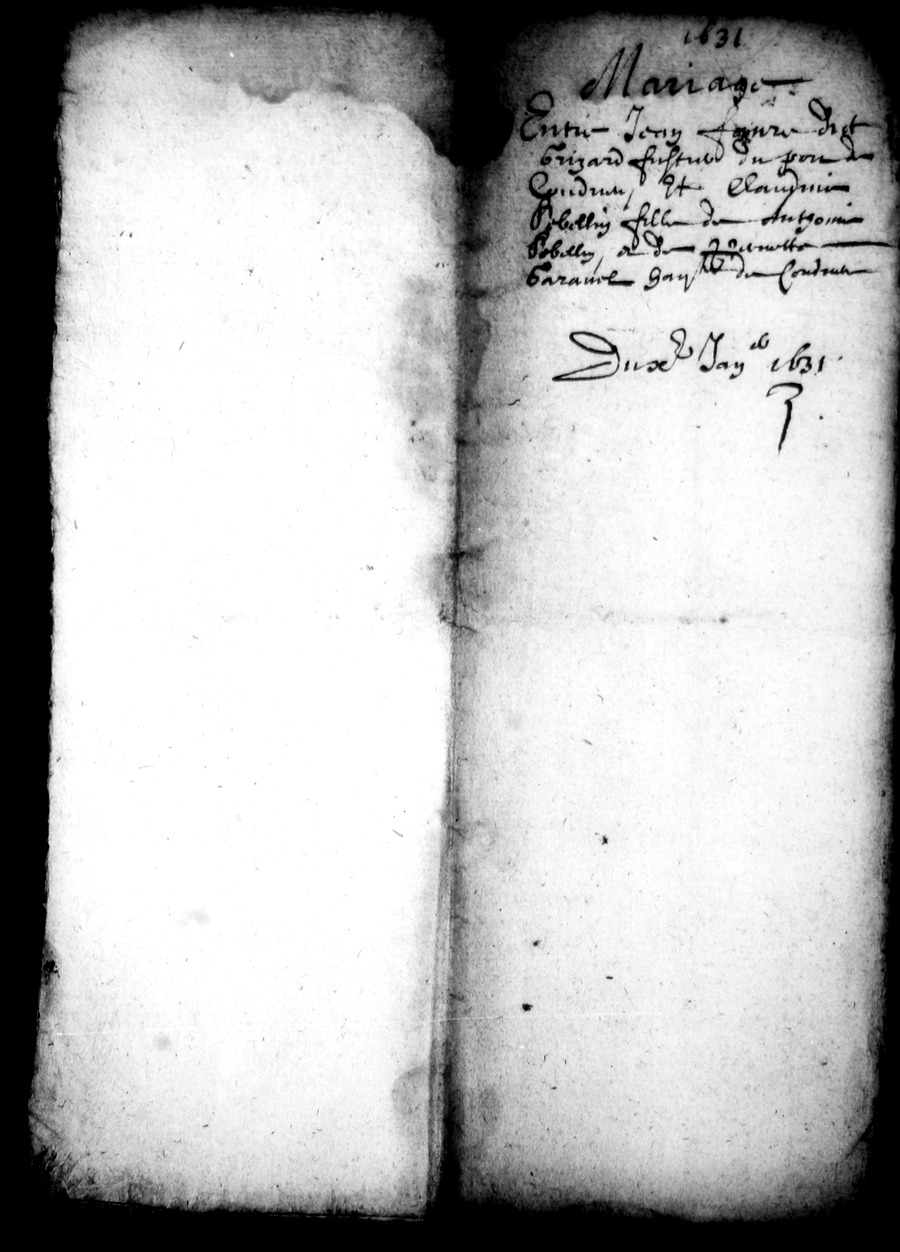 1631
Mariage
Entre Jean faure dict
Grizard fustier du port de
Condrieu, Et Claudine
Pebellin fille de Anthoine
Pebellin, et de Pernette
Garauel de Condrieu
Du xe Janer 1631